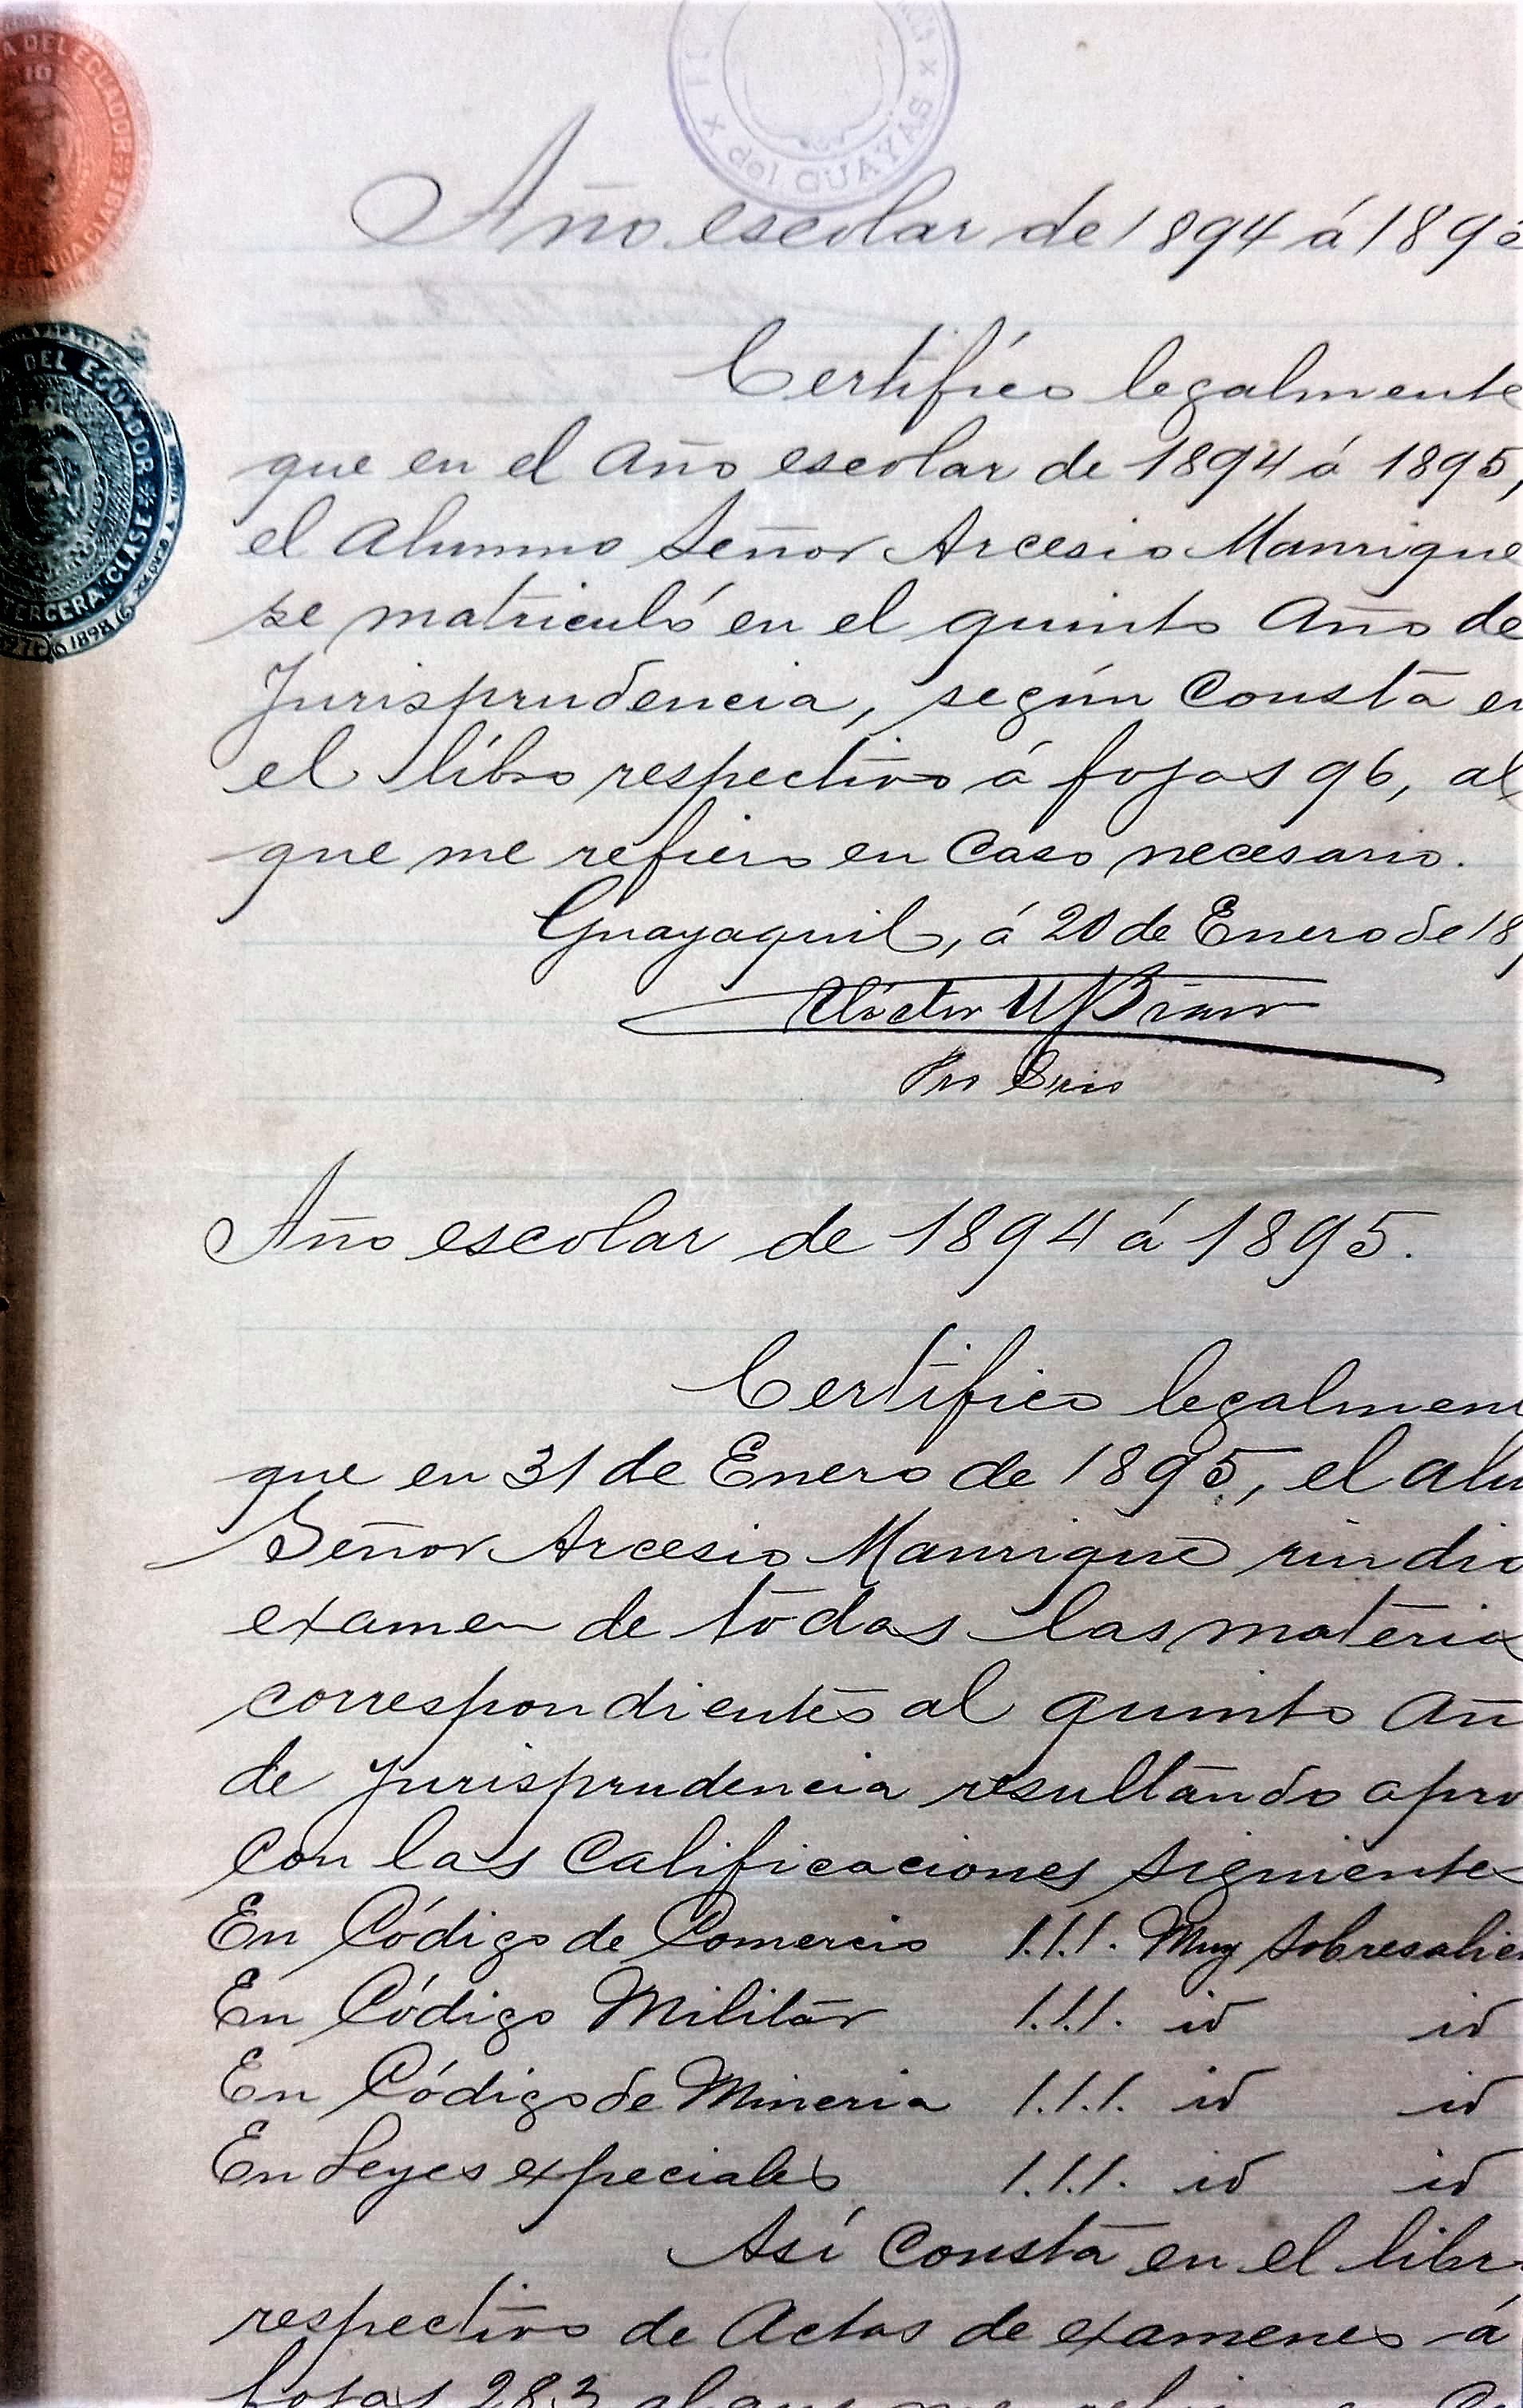 A DEL ECUADOR
10
del GUAYAS
Año escolar de 1894 á 189
DEL ECUADOR
TERCERA CLASE
1898
Certifico legalmente
que en el año escolar de 1894 á 1895,
el alumno Señor Arcesio Manrique
se matriculó en el quinto año de
Jurisprudencia, según consta en
el libro respectivo á fojas 96, al
que me refiero en caso necesario.
Guayaquil, á 20 de Enero de 18
Víctor
Año escolar de 1894 á 1895.
Certifico legalmen
que en 31 de Enero de 1895, el alu
Señor Arcesio Manrique rindio
examen de todas las materia
correspondientes al quinto añ
de jurisprudencia resultando apro
con las calificaciones siguientes
En Código de Comercio 1.1.1. Muy sobresalie
En Código Militar 1.1.1. id id
En Código de Mineria 1.1.1. id id
En Leyes especiales 1.1.1. id id
Así consta en el libr
respectivo de Actas de examenes á
fojas 283 al que me